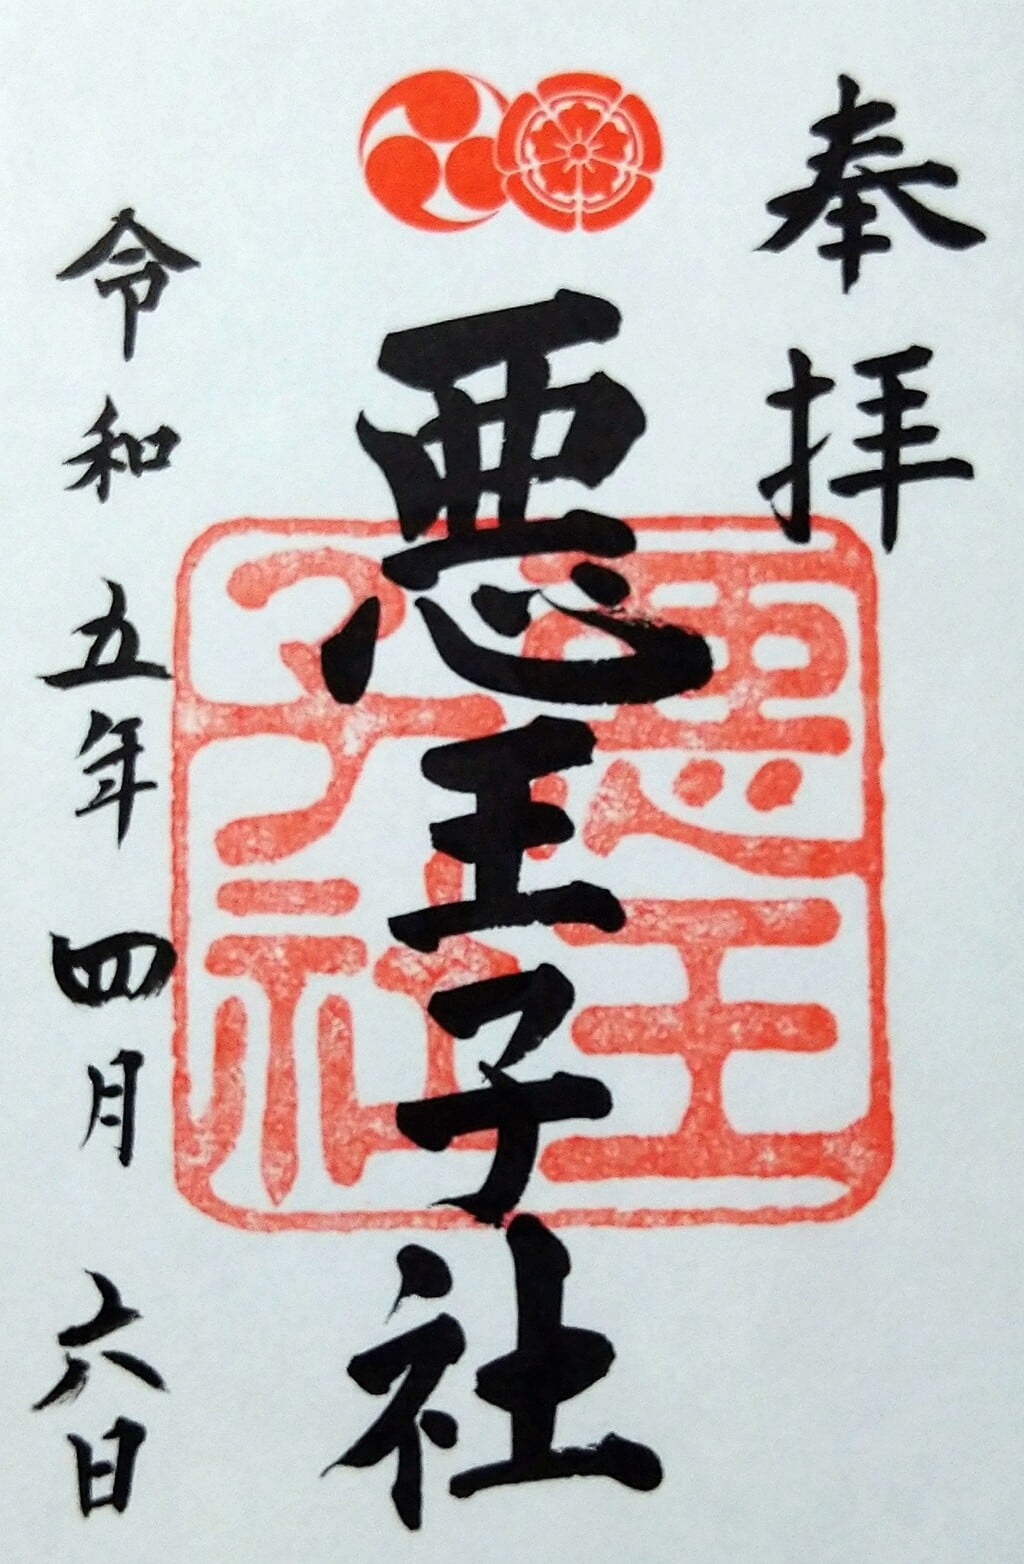 奉拝
悪王子社
令和五年四月六日
悪王
子社